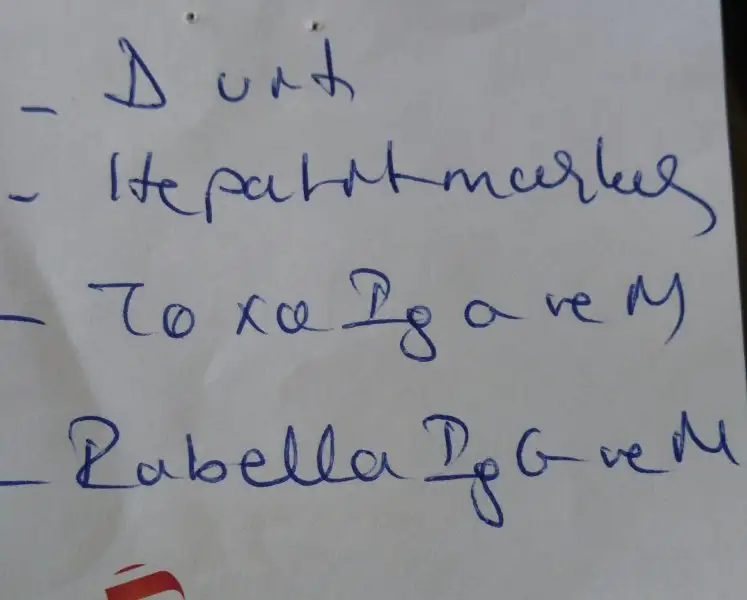 - D vit
- Hepatit markes
- Toxo Ig G ve M
- Rubella Ig G ve M